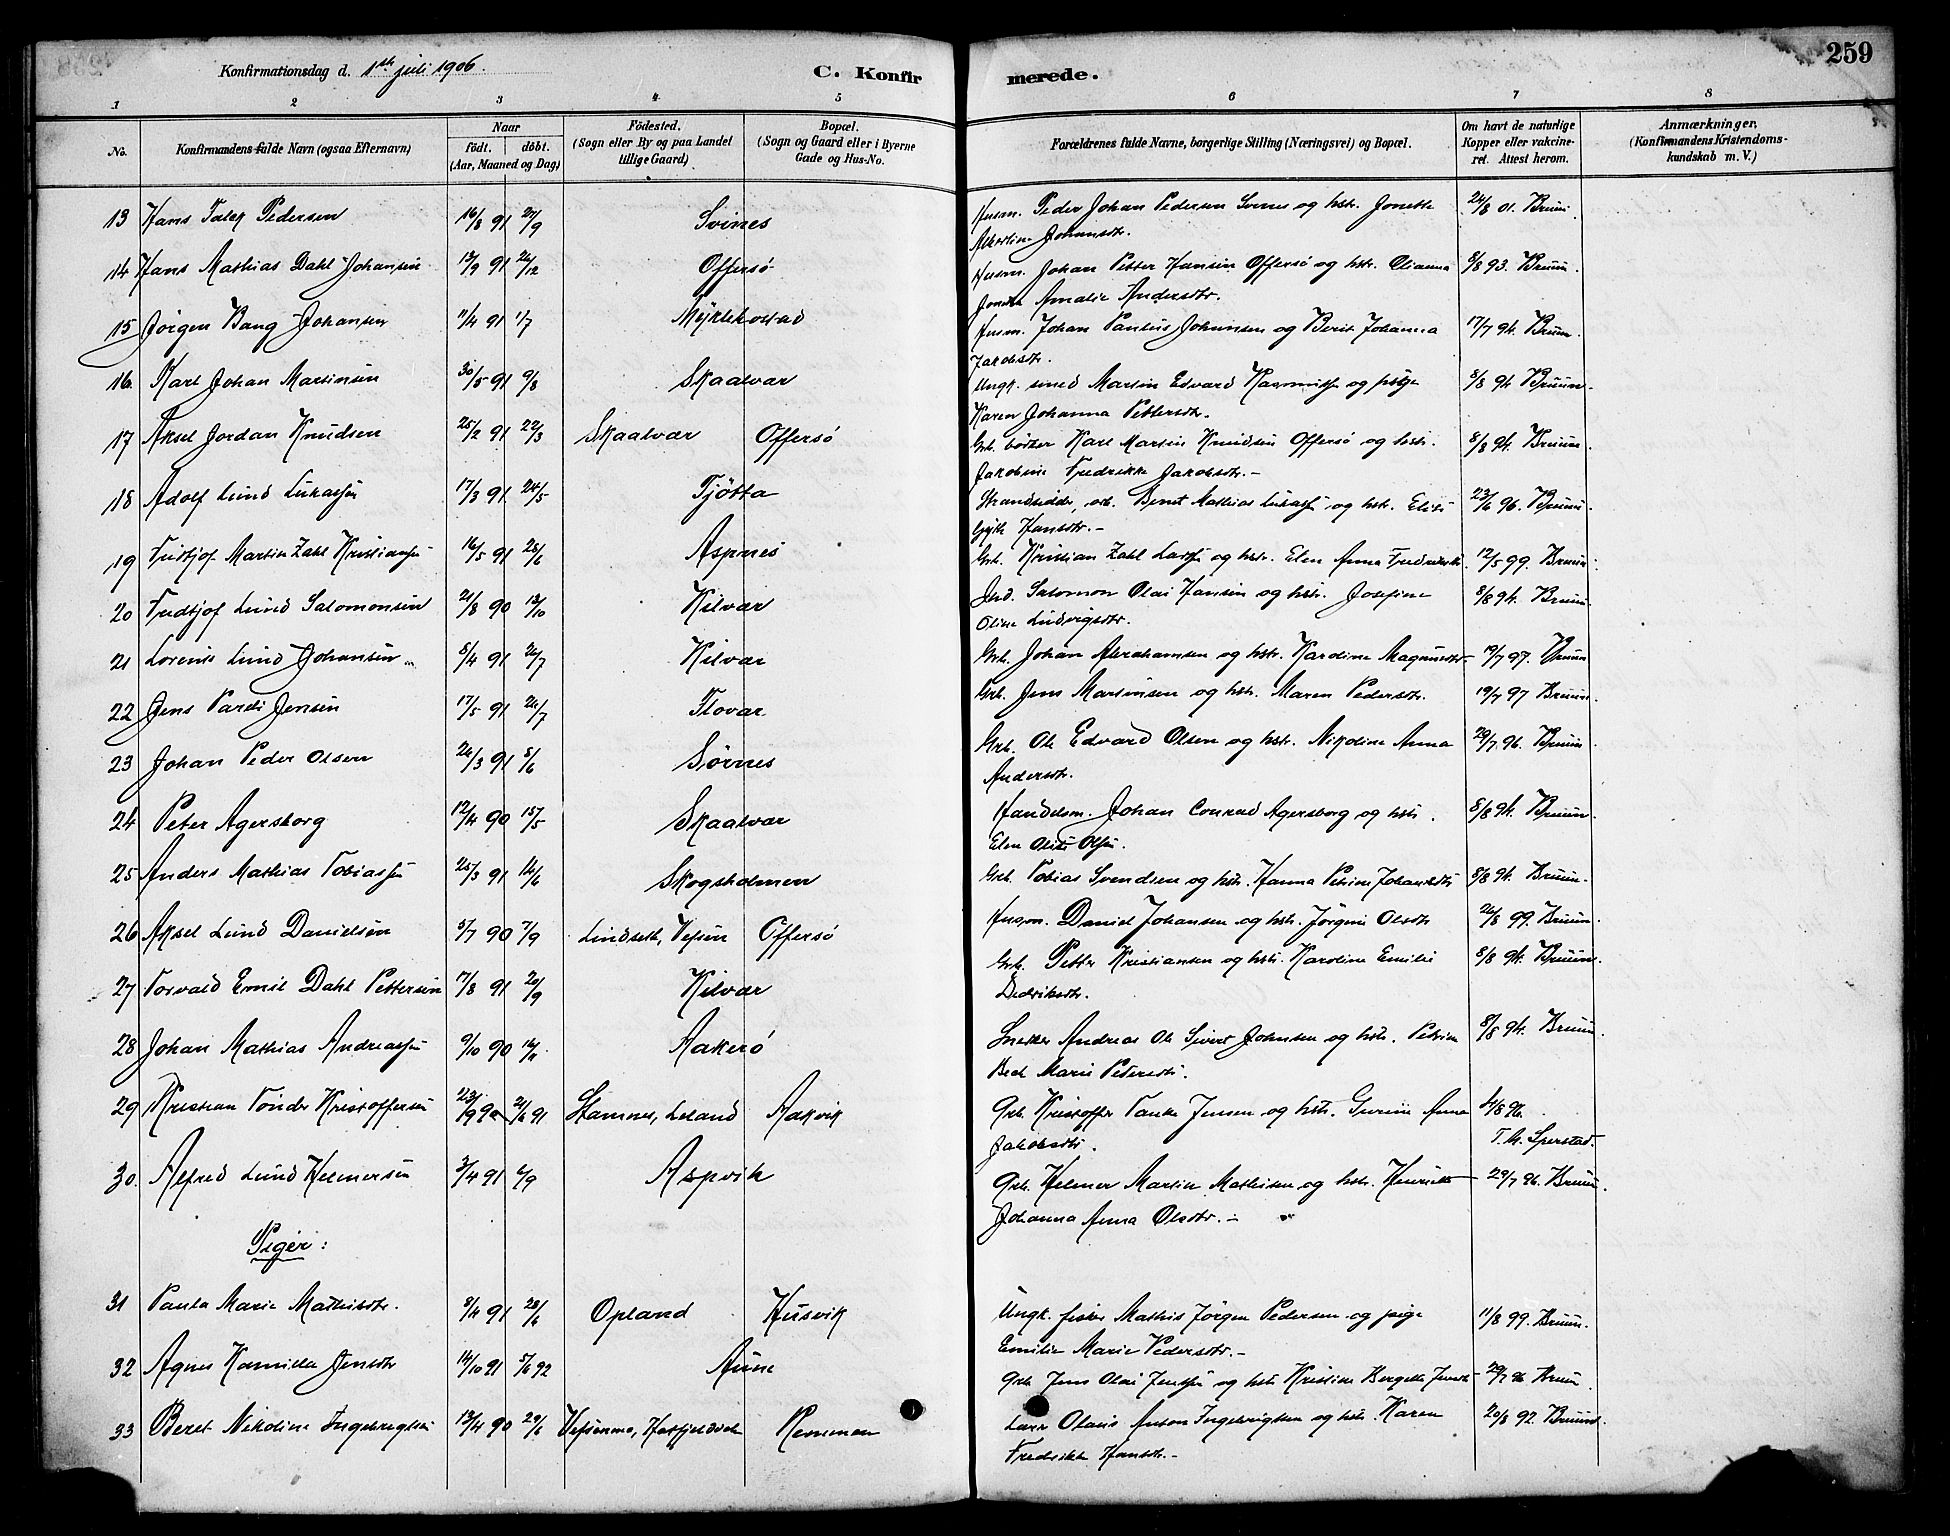 259
Konfirmationsdag d. 1ste juli 1906.
C. Konfirmerede.
1 2 3 4 5 6 7 8
No.
Konfirmandens fulde Navn (ogsaa Efternavn)
Naar
født. døbt.
(Aar, Maaned og Dag)
Födested.
(Sogn eller By og paa Landet
tillige Gaard)
Bopæl.
(Sogn og Gaard eller i Byerne
Gade og Hus-No.
Forældrenes fulde Navne, borgerlige Stilling (Næringsvei) og Bopæl.
Om havt de naturlige
Kopper eller vakcine-
ret. Attest herom.
Anmærkninger,
(Konfirmandens Kristendoms-
kundskab m. V.)
13 Hans Falck Pedersen 16/8 91 27/9 Svines Husm. Peder Johan Pedersen Svines og hstr. Jonette 24/8 01. Bruun.
Albertine Johansdtr.
14 Hans Mathias Dahl Johansen 13/9 91 26/12 Offersø Husm. Johan Petter Hansen Offersø og hstr. Olianna 8/8 93. Bruun.
Amalie Andersdtr.
15 Jørgen Bang Johansen 11/4 91 1/7 Myklebostad Husm. Johan Paulus Johansen og Berit Johanna 17/7 94. Bruun.
Jakobsdtr.
16. Karl Johan Martinsen 30/5 91 9/8 Skaalvær Ungk. smed Martin Edvard Rasmuss. og pige 8/8 94. Bruun.
Karen Johanna Pettersdtr.
17 Aksel Jordan Knudsen 25/2 91 22/3 Skaalvær Offersø Grb. bøtker Karl Martin Knudsen Offersø og hstr. 8/8 94. Bruun.
Jakobine Fredrikke Jakobsdtr.-
18 Adolf Lund Lukassen 17/3 91 24/5 Tjøtta Strandsidder, arb. Bernt Mathias Lukass. og hstr. 23/6 96. Bruun.
Hansdtr.-
19 Fridtjof Martin Zahl Kristianss. 16/5 91 28/6 Aspnes Grb. Kristian Zahl Larss. og hstr. Elen Anna Fredriksdtr. 12/5 99. Bruun.
20 Fridtjof Lund Salomonsen 21/8 90 13/10 Kilvær Salomon Olai Hansen og hstr. Josefine 8/8 94. Bruun.
Oline Ludvigsdtr.
21 Lorents Lund Johansen 5/4 91 26/7 Kilvær Grb. Johan Abrahamsen og hstr. Karoline Magnusdtr. 19/7 97. Bruun
22 Jens Pareli Jensen 17/5 91 26/7 Flovær Grb. Jens Martinsen og hstr. Maren Pedersdtr. 19/7 97 Bruun.
23 Johan Peder Olsen 24/3 91 8/6 Sørnes Grb. Ole Edvard Olsen og hstr. Nikoline Anna 29/7 96. Bruun.
Andersdtr.
24 Peter Agersborg 12/4 90 15/5 Skaalvær Handelsm. Johan Conrad Agersborg og hstr. 8/8 94. Bruun.
Elen Olsen.
25 Anders Mathias Tobiassen 25/3 91 14/6 Skogsholmen Grb. Tobias Svendsen og hstr. Hanna Petrine Johansdtr. 8/8 94. Bruun.
26 Aksel Lund Danielsen 3/7 90 7/9 Lindseth, Vefsen Offersø Husm. Daniel Johansen og hstr. Jørgine Olsdtr. 26/8 99. Bruun.
27 Torvald Emil Dahl Pettersen 7/8 91 20/9 Kilvær Grb. Petter Kristiansen og hstr. Karoline Emilie 8/8 94. Bruun.
Dedriksdtr.
28 Johan Mathias Andreassen 9/10 90 16/11 Aakerø Snekker Andreas Ole Sivert Johnsen og hstr. Petrine 8/8 94. Bruun.
Beck Marie Petersdtr.
29 Kristian Tønder Kristoffersen 23/12 90 21/6 91 Stamnes, Leland Aakvik Grb. Kristoffer Jensen og hstr. Gurine Anna 4/8 96.
Jakobsdtr. T. M. Sperstad.
30. Alfred Lund Helmersen 3/4 91 6/9 Aspvik Grb. Helmer Martin Mathisen og hstr. Henriette 29/7 96. Bruun.
Johanna Anna Olsdtr.-
Piger:
31 Paula Marie Mathisdtr. 8/4 91 28/6 Opland Husvik Ungk. fisker Mathis Jørgen Pedersen og pige 11/8 99. Bruun.
Emilie Marie Pedersdtr.-
32 Agnes Kamilla Jensdtr. 14/10 91 5/6 92 Aune Grb. Jens Olai Jenssen og hstr. Kristine Bergette 29/7 96 Bruun.
33 Beret Nikoline Ingebrigtsen 13/4 90 29/6 Hatfjelddal Remman Olaus Anton Ingebrigtsen og hstr. Karen 20/8 92. Bruun.
Fredrikke Hansdtr.-